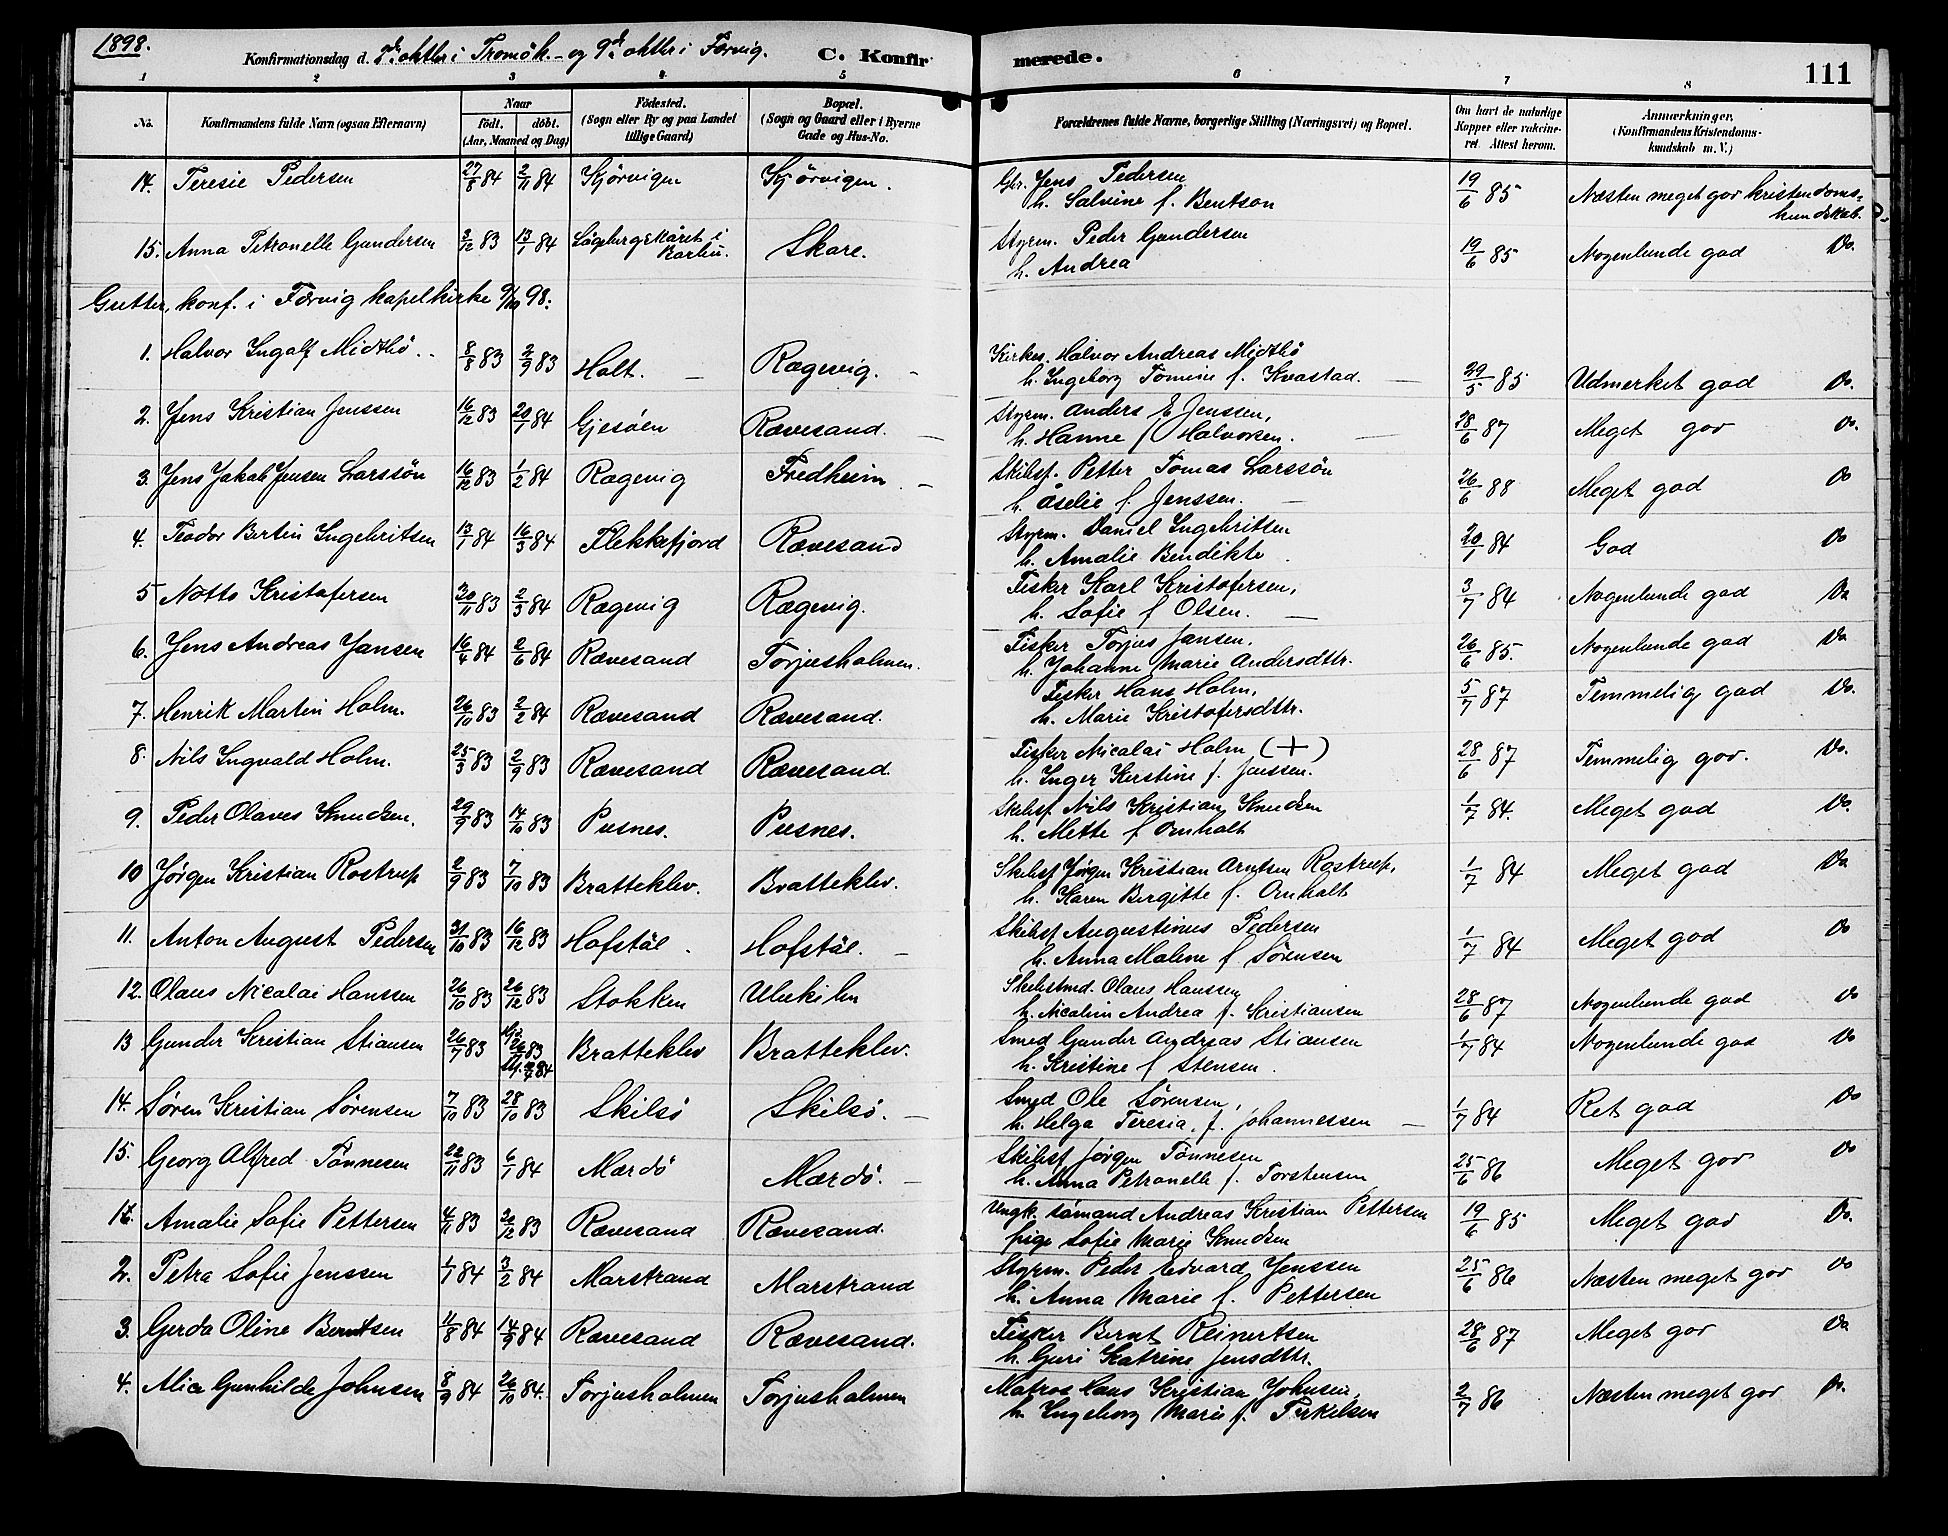 1898.
Konfirmationsdag d. 2den oktbr i Tromök. og 9de oktbr i Færvig. C. Konfirmerede. 111
1 2 3 4 5 6 7 8
No. Konfirmandens fulde Navn (ogsaa Efternavn) Naar födt. döbt. (Aar, Maaned og Dag) Födested. (Sogn eller By og paa Landet tillige Gaard) Bopæl. (Sogn og Gaard eller i Byerne Gade og Hus-No. Forældrenes fulde Navne, borgerlige Stilling (Næringsvei) og Bopæl. Om havt de naturlige Kopper eller vakcineret. Attest herom. Anmærkninger. (Konfirmandens Kristendomskundskab m. V.)
14. Teresie Pedersen 27/8 84 2/11 84 Kjörvigen Kjörvigen. Gbr. Jens Pedersen 19/6 85 Næsten meget god kristendoms-
h. Salvine f. Bentson kundskab.
15. Anna Petronelle Gundersen 3/12 83 13/1 84 Skare. Styrm. Peder Gundersen 19/6 85 Nogenlunde god Do.
h. Andrea
Gutter, konf. i Færvig kapelkirke 9/10 98.
1. Halvor Ingolf Midtbö 8/8 83 2/9 83 Holt. Rægevig. Kirkes. Halvor Andreas Midtbö 29/5 85 Udmerket god Do.
h. Ingeborg Tomine f. Kvastad.
2. Jens Kristian Jenssen 16/12 83 20/1 84 Gjesöen Rævesand. Styrm. Anders E Jenssen, 28/6 87 Meget god Do.
h. Hanne f Halvorsen.
3. Jens Jakob Jensen Larssön 16/12 83 1/2 84 Rægevig Fredheim Skibsf. Petter Tomas Larssön 26/6 88 Meget god Do
h. Åselie f. Jenssen.
4. Teodor Bertin Ingebritsen 13/1 84 16/3 84 Flekkefjord Rævesand Styrm. Daniel Ingebritsen 20/7 84 God Do
h. Amalie Bendikte
5 Notto Kristofersen 30/11 83 2/3 84 Rægevig Rægevig. Fisker Karl Kristofersen, 3/7 84 Nogenlunde god Do
h. Sofie f Olsen.
6. Jens Andreas Jansen 16/4 84 2/6 84 Rævesand Torjusholmen. Fisker Torjus Jansen. 26/6 85. Nogenlunde god Do
h. Johanne Marie Andersdttr.
7. Henrik Martin Holm. 26/10 83 2/2 84 Rævesand Rævesand. Fisker Hans Holm, 5/7 87 Temmelig god Do.
h. Marie Kristofersdttr.
8. Nils Ingvald Holm. 25/3 83 2/9 83 Rævesand Rævesand. Fisker Nicolai Holm (+) 28/6 87 Temmelig god. Do.
h. Inger Kerstine f. Jenssen.
9. Peder Olaves Knudsen. 29/9 83 14/10 83 Pusnes. Pusnes. Skibsf Nils Kristian Knudsen 1/7 84. Meget god Do.
h. Mette f Ornholt
10 Jørgen Kristian Rostrup 2/9 83 7/10 83 Bratteklev. Bratteklev. Skibsf Jørgen Kristian Arntsen Rostrup, 1/7 84 Meget god Do
h. Karen Birgitte f. Ornholt
11. Anton August Pedersen 31/10 83 16/12 83 Hofstöl Hofstöl. Skibsf Augustinus Pedersen 1/7 84 Meget god Do
h. Anna Malene f Sørensen
12. Olaus Nicolai Hanssen 26/10 83 26/12 83 Stokken Ulvekiln Skibstmd. Olaus Hanssen 28/6 87 Nogenlunde god Do
h. Nicoline Andrea f. Kristiansen
13 Gunder Kristian Stiansen 26/7 83 Bratteklev Bratteklev. Smed Gunder Andreas Stiansen 1/7 84 Nogenlunde god Do
h. Kristine f Stensen.
14. Sören Kristian Sörensen 7/10 83 28/10 83 Skilsö Skilsö. Smed Ole Sørensen, 1/7 84 Ret god Do
h. Helga Teresia, f. Johannessen
15. Georg Alfred Tönnesen 22/11 83 6/1 84 Mærdö Mærdö. Skibsf Jörgen Tönnesen 25/6 86 Meget god Do
h. Anna Petronelle f. Torstensen
1. Amalie Sofie Pettersen 4/11 83 20/12 83 Rævesand Rævesand. Ungk. sömand Andreas Kristian Pettersen 19/6 85 Meget god Do.
pige Sofie Marie Knudsen
2. Petra Sofie Jenssen 1/1 84 3/2 84 Marstrand Marstrand Styrm. Peder Edvard Jenssen 25/6 86 Næsten meget god Do
h. Anna Marie f. Pettersen
3. Gerda Oline Berntsen 11/8 84 14/9 84 Rævesand Rævesand. Fisker Bernt Reinertsen 28/6 87 Meget god Do
h. Guri Katrine Jensdttr.
4. Alice Gunhilde Johnsen 8/9 84 26/10 84. Torjusholmen Torjusholmen Matros Hans Kristian Johnsen, 2/7 86 Næsten meget god Do.
h. Ingeborg Marie f. Terkelsen